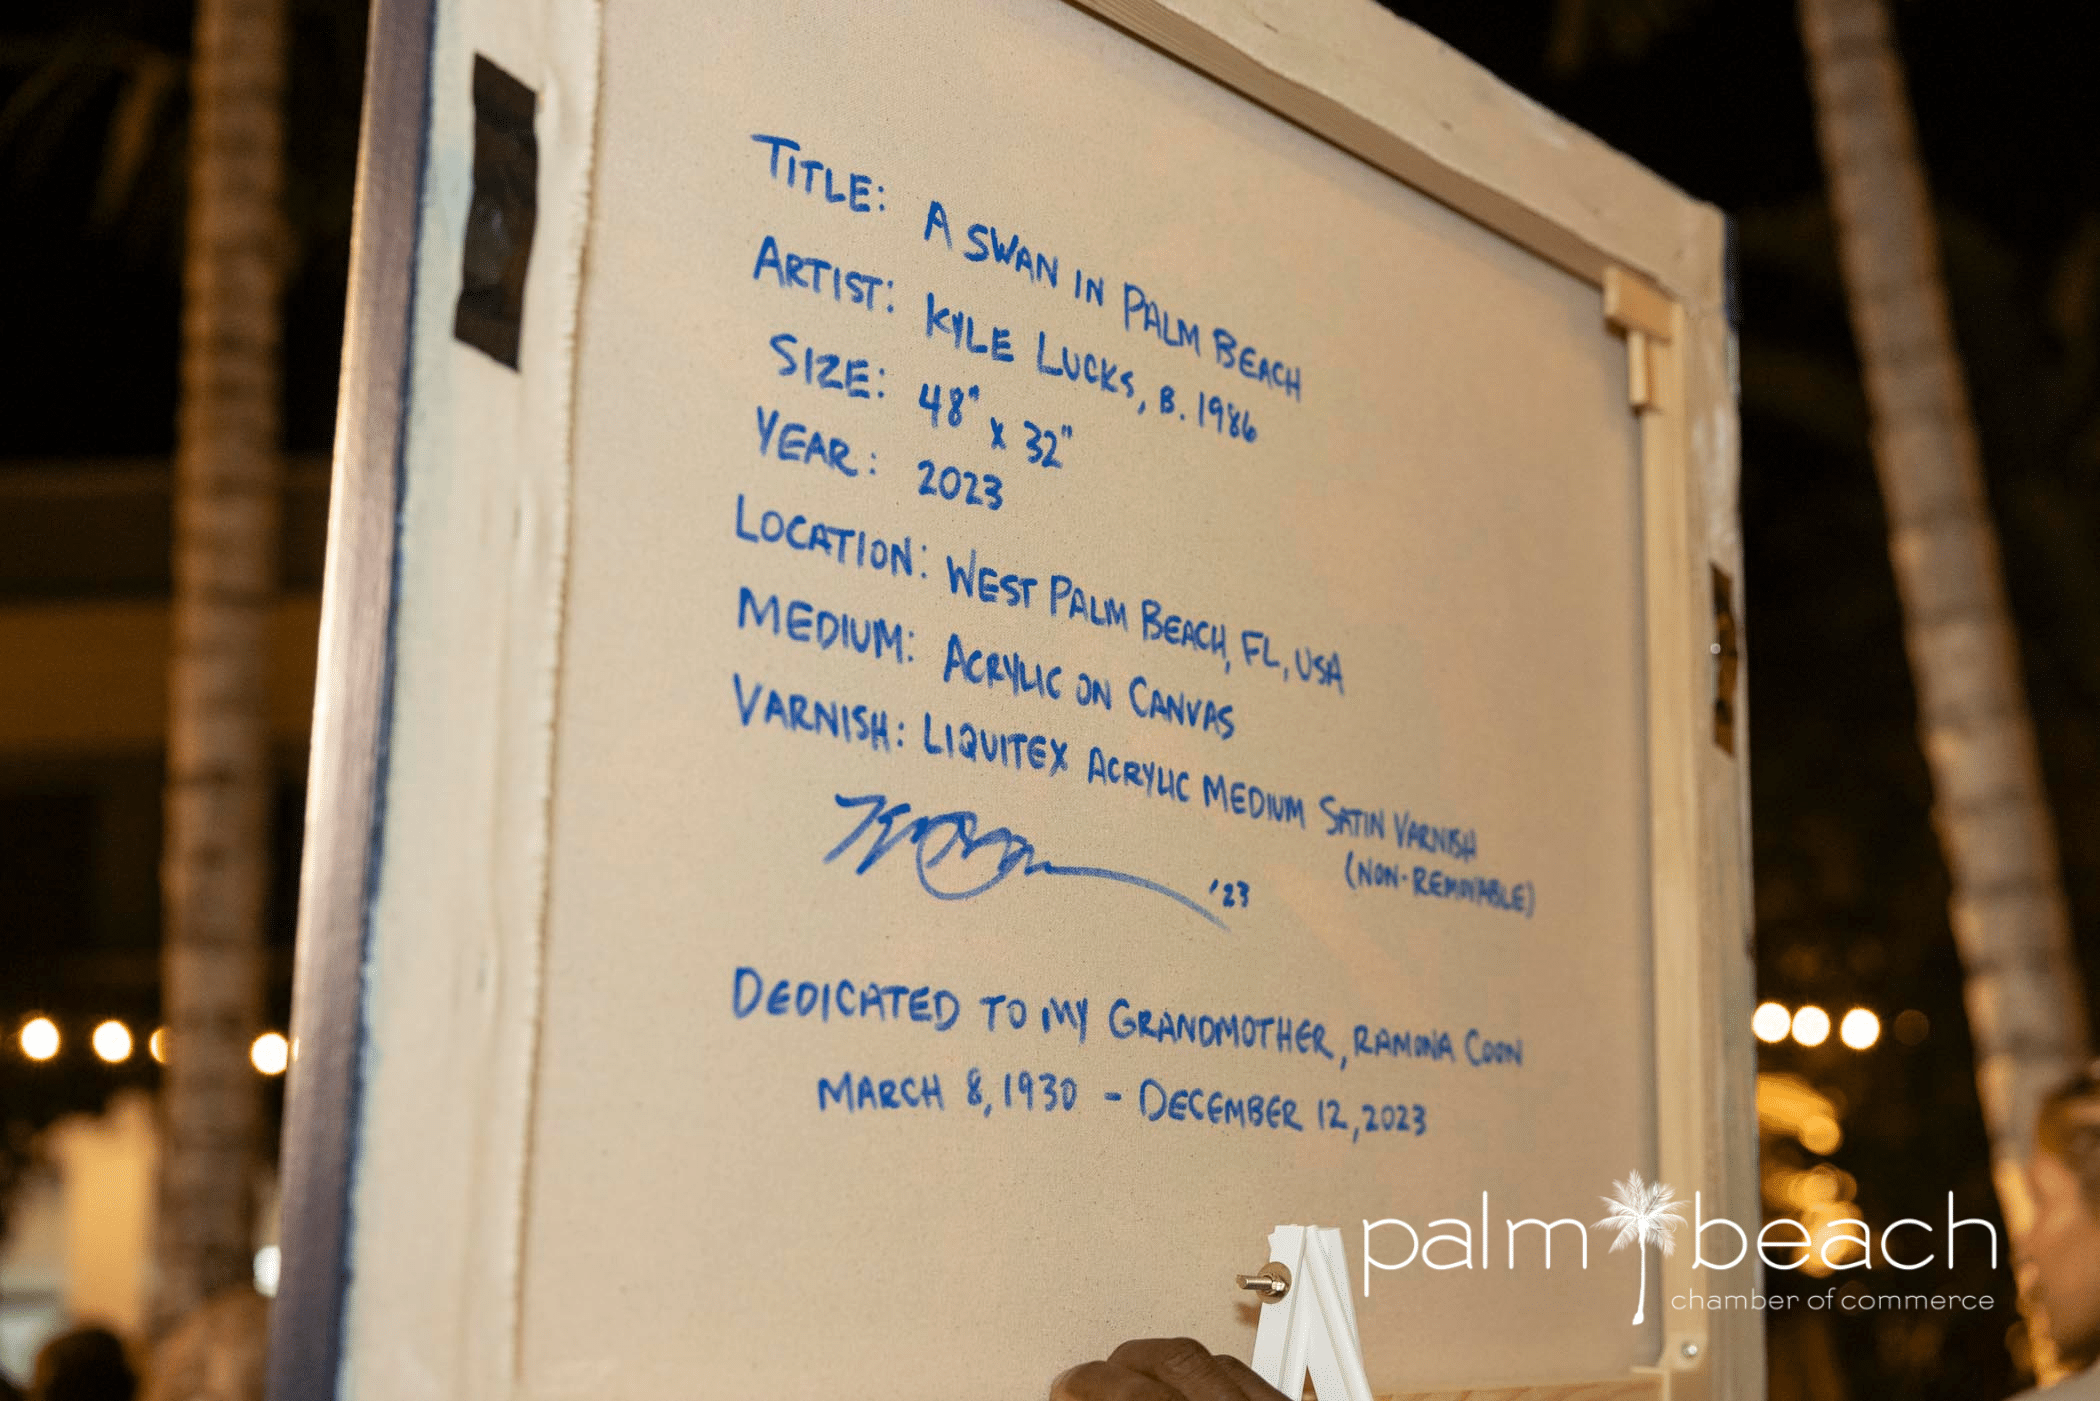 TITLE: A SWAN IN PALM BEACH
ARTIST: KYLE LUCKS, B. 1986
SIZE: 48" x 32"
YEAR: 2023
LOCATION: WEST PALM BEACH, FL, USA
MEDIUM: ACRYLIC ON CANVAS
VARNISH: LIQUITEX ACRYLIC MEDIUM SATIN VARNISH
(NON-REMOVABLE)
'23
DEDICATED TO MY GRANDMOTHER, RAMONA COON
MARCH 8, 1930 - DECEMBER 12, 2023
palm beach
chamber of commerce